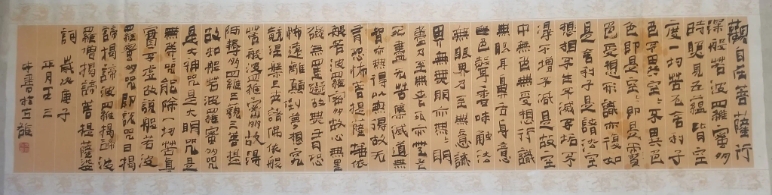 觀自在菩薩行
深般若波羅蜜多
時照見五蘊皆空
度一切苦厄舍利子
色不異空空不異色
色即是空空即是
色受想行識亦復如
是舍利子是諸法空
相不生不滅不垢不
淨不增不減是故空
中無色無受想行識
無眼耳鼻舌身意
無色聲香味觸法
無眼界乃至無意識
界無無明亦無無明
盡乃至無老死亦無老
死盡無苦集滅道無
智亦無得以無所得故
菩提薩埵依
般若波羅蜜多故心無罣
礙無罣礙故無有恐
怖遠離顛倒夢想究
竟涅槃三世諸佛依般
若波羅蜜多故得
阿耨多羅三藐三菩提
故知般若波羅蜜多咒
是大神咒是大明咒是
無等等咒能除一切苦真
實不虛故說般若波
羅蜜多咒即說咒曰揭
諦揭諦波羅揭諦波
羅僧揭諦菩提薩婆
訶